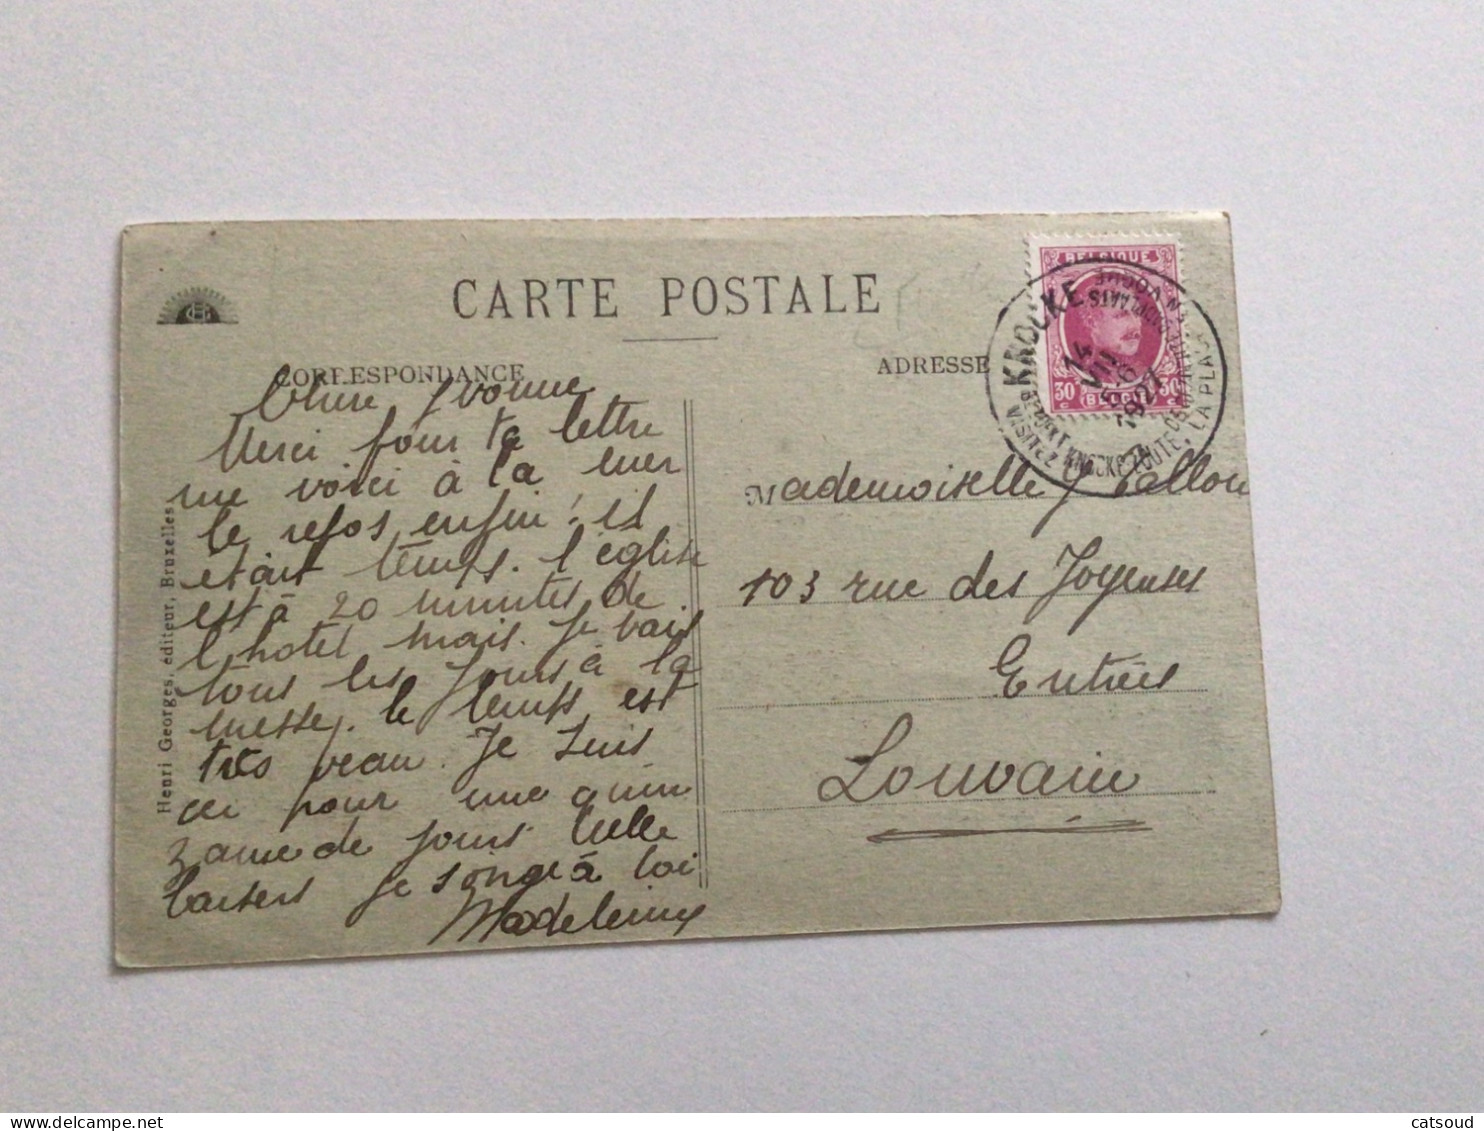 CARTE POSTALE
CORRESPONDANCE
Chère Yvonne
Merci pour ta lettre
me voici à la mer
le repos enfin! il
était temps. l'église
est à 20 minutes de
l'hotel mais je vais
tous les jours à la
messe. le temps est
très beau. Je suis
ici pour une quin
zaine de jours mille
baisers je songe à toi
Madeleine
Henri Georges, éditeur, Bruxelles
ADRESSE
Mademoiselle Y
103 rue des Joyeuses
Entrées
Louvain
BELGIQUE
30 30
c BELGIE c
KNOCKE
14
VIII
1927
VISITEZ
KNOCKE ZOUTE
LA PLAGE
EN VOGUE
catsoud